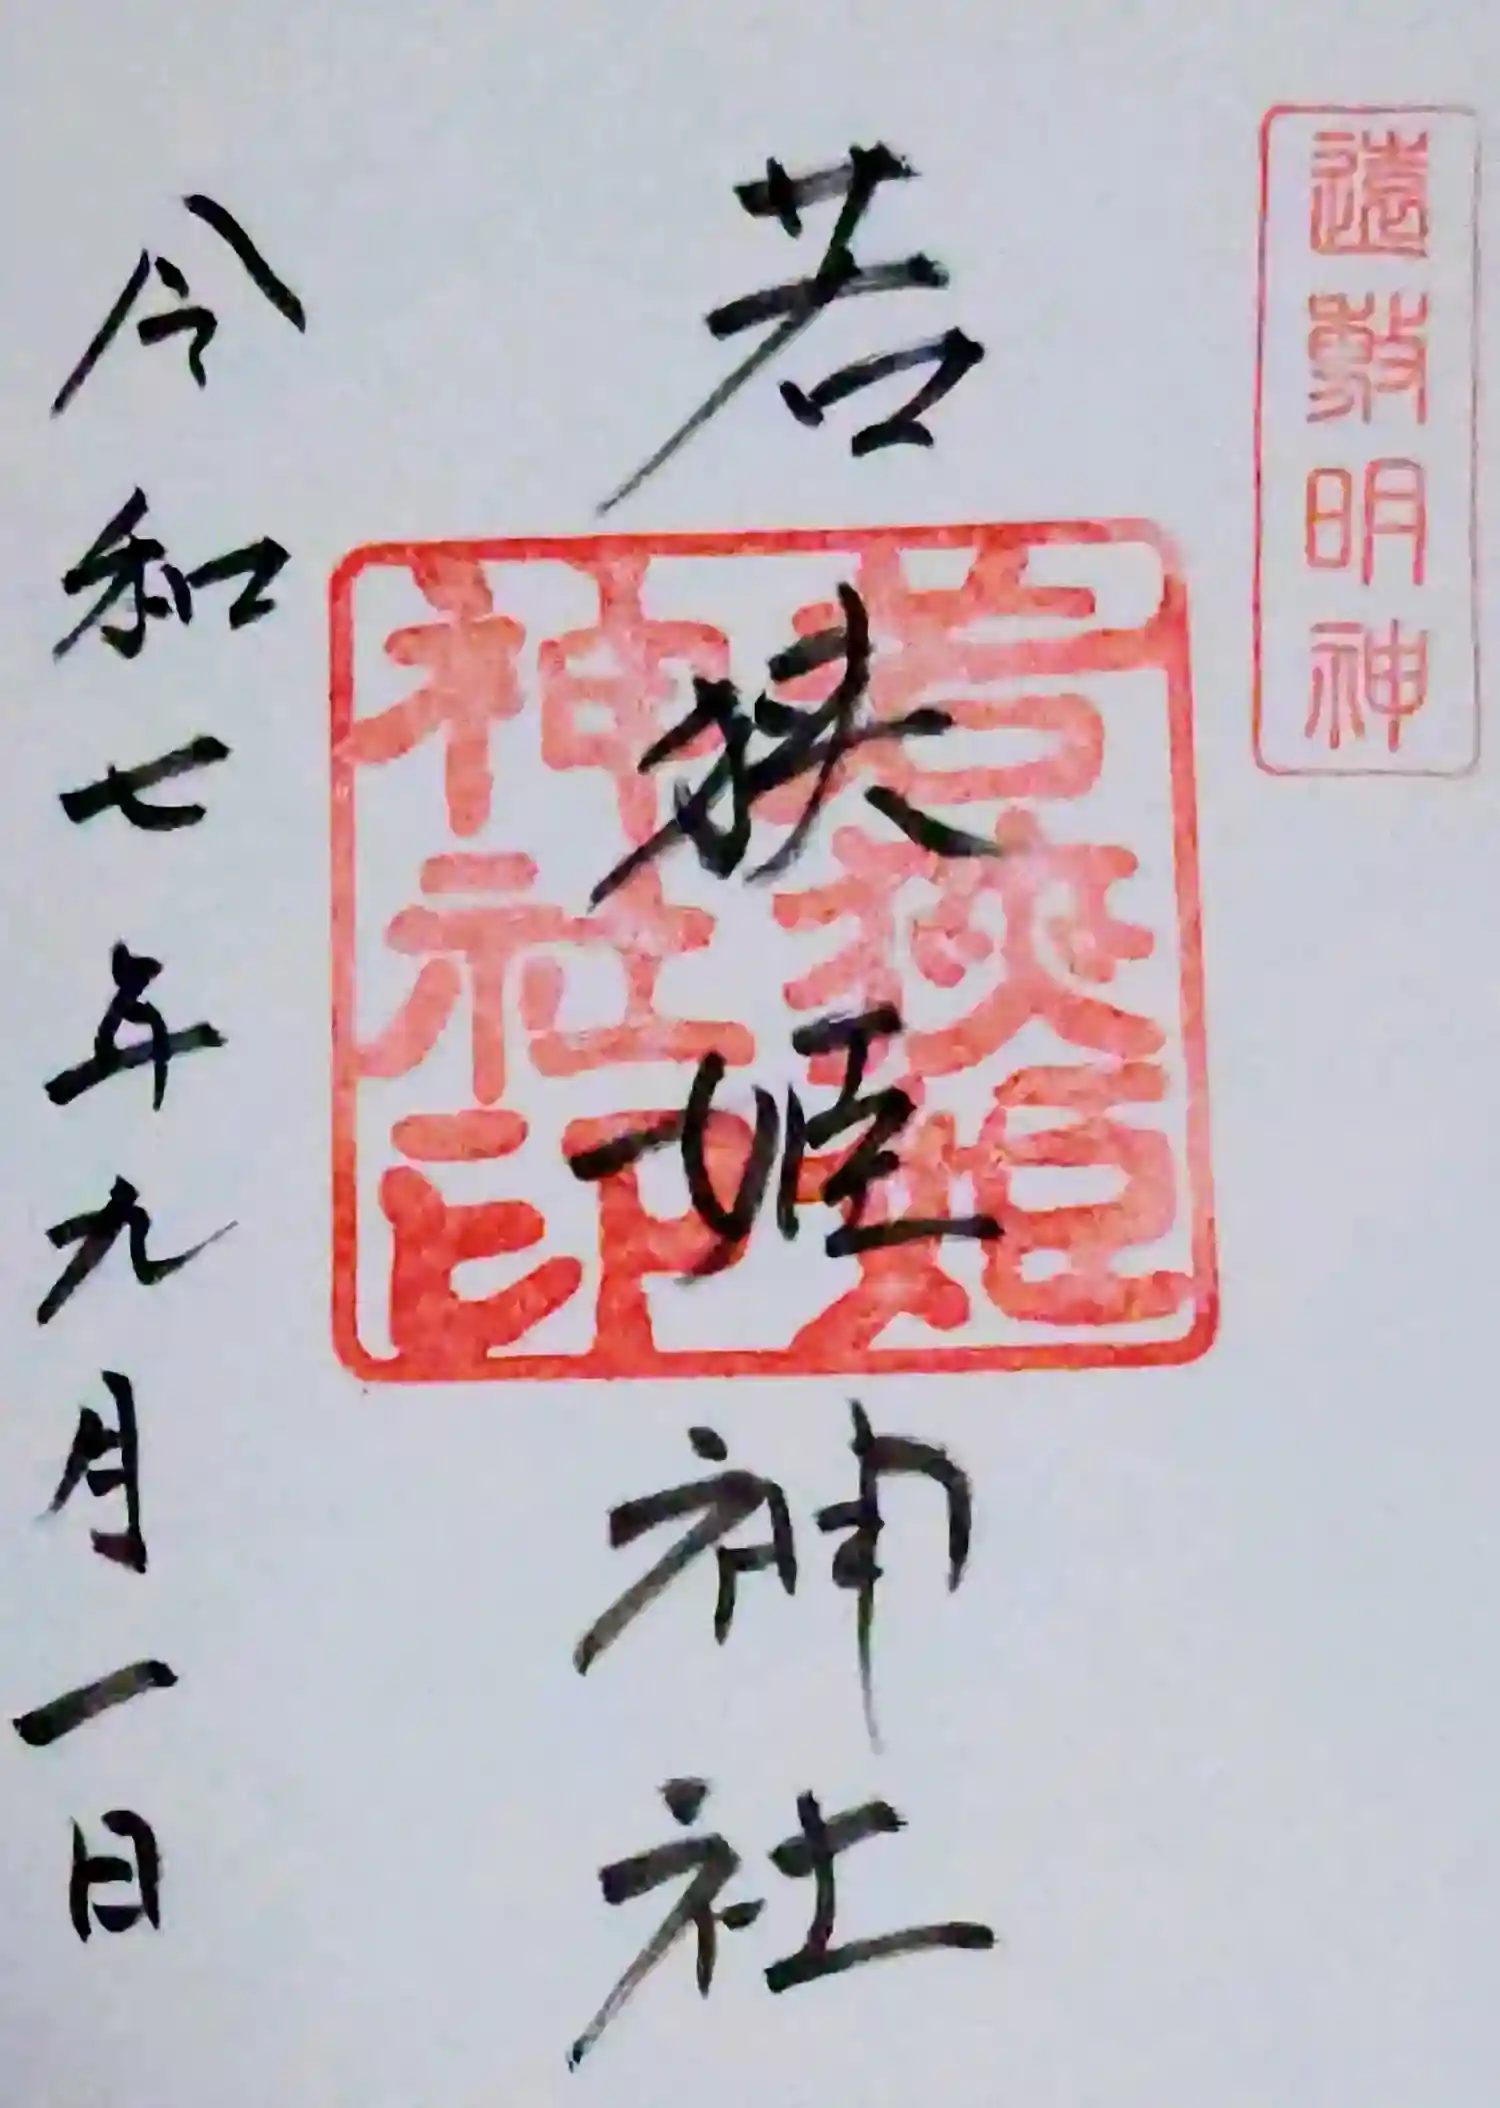 遠敷明神
若狭姫神社
若狹姫
神社印
令和七年九月一日